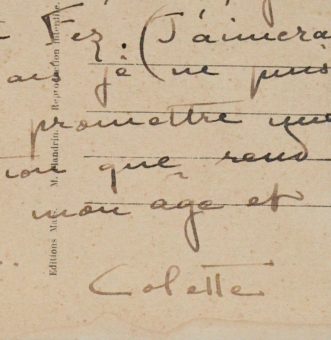 Fez. (J'aimera
je (ne puis
promettre une
ion que rend
mon âge et
Colette
Editions M. Mandrin. Reproduction interdite.